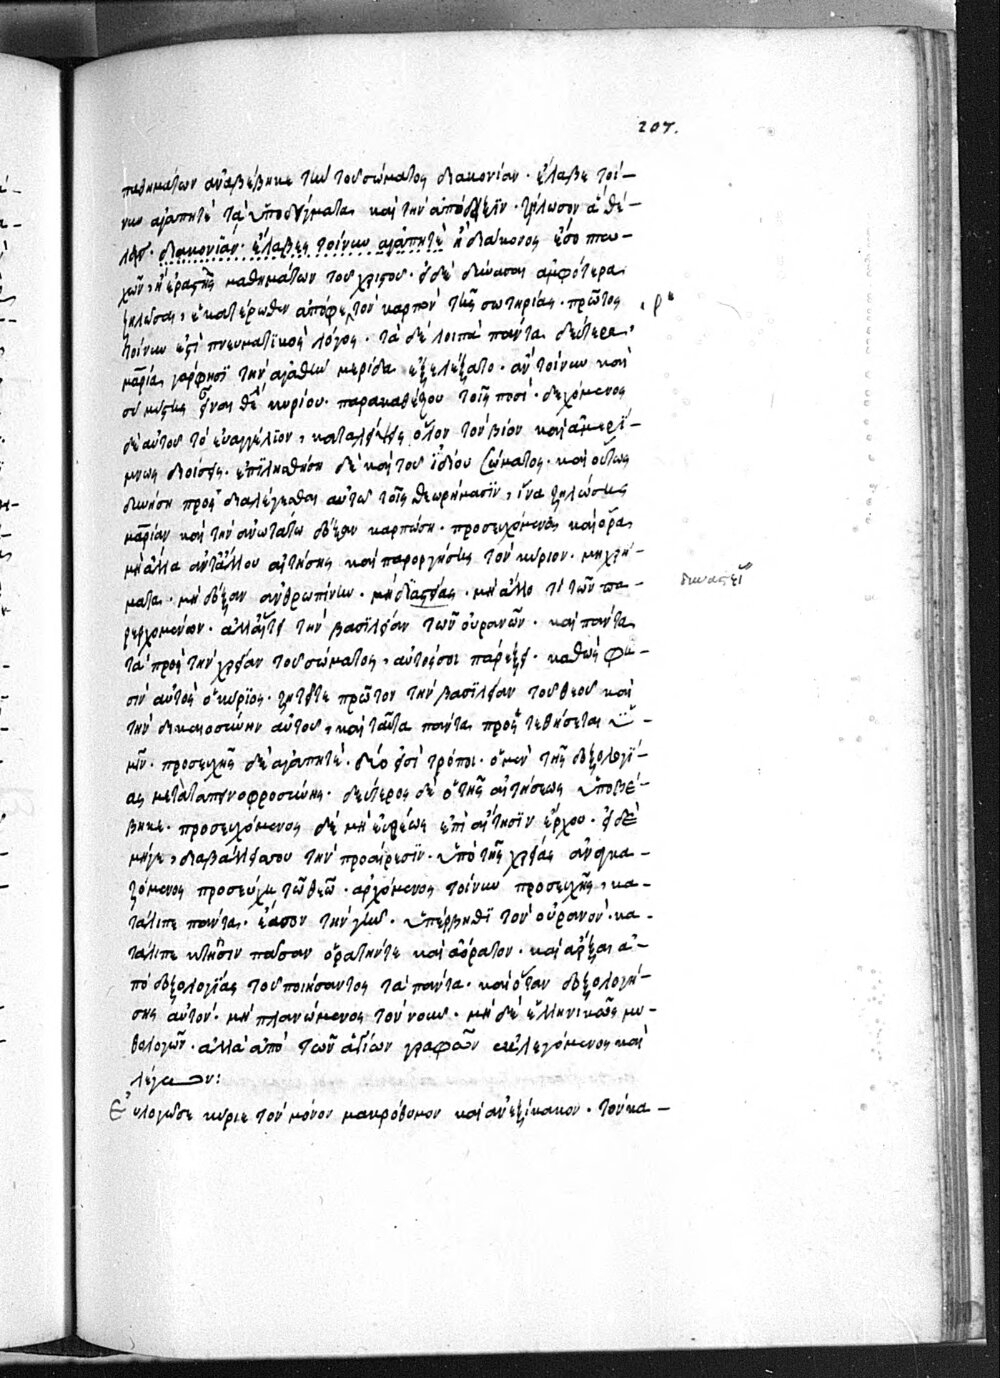 207.
παθημάτων ἀναβέβηκε τὴν τοῦ σώματος διακονίαν· ἔλαβε τοί-
νυν ἀγαπητὲ τὰ ὑποδείγματα καὶ τὴν ἀπόδειξιν· ζήλωσον ὃ θέ-
λεις· διακονίαν· ἔλαβες τοίνυν ἀγαπητὲ ἢ διάκονος ἔσο πτω-
χῶν, ἢ ἐραστὴς μαθημάτων τοῦ χριστοῦ· εἰ δὲ δύνασαι ἀμφότερα
ζηλῶσαι, ἑκατέρωθεν ἀπόφερε τὸν καρπὸν τῆς σωτηρίας· πρῶτος
τοίνυν ἐστὶ πνευματικὸς λόγος· τὰ δὲ λοιπὰ πάντα δεύτερα,
μαρία γὰρ φησὶ τὴν ἀγαθὴν μερίδα ἐξελέξατο· ἂν τοίνυν καὶ
σὺ μύστης εἶναι θέλῃς κυρίου· παρακαθέζου τοῖς ποσὶ· δεχόμενος
δὲ αὐτοῦ τὸ εὐαγγέλιον, καταλείψεις ὅλον τὸν βίον καὶ ἀμερί-
μνως διοίσεις· ἐπιλησθήσῃ δὲ καὶ τοῦ ἰδίου σώματος· καὶ οὕτως
δυνήσῃ προσδιαλέγεσθαι αὐτοῦ τοῖς θεωρήμασιν, ἵνα ζηλώσῃς
μαρίαν καὶ τὴν ἀνωτάτω δόξαν καρπώσῃ· προσευχόμενος καὶ ὅρα
μὴ ἄλλα ἀντ' ἄλλου αἰτήσῃς καὶ παροργήσῃς τὸν κύριον· μὴ χρή-
ματα· μὴ δόξαν ἀνθρωπίνην· μὴ δυναστείας· μὴ ἄλλο τι τῶν πα-
δυναστεί
ρερχομένων· ἀλλ' αἰτεῖ τὴν βασιλείαν τῶν οὐρανῶν· καὶ πάντα
τὰ πρὸς τὴν χρείαν τοῦ σώματος, αὐτός σοι παρέξει· καθὼς φη-
σιν αὐτὸς ὁ κύριος· ζητεῖτε πρῶτον τὴν βασιλείαν τοῦ θεοῦ καὶ
τὴν δικαιοσύνην αὐτοῦ, καὶ ταῦτα πάντα προστεθήσεται ὑ-
μῖν· προσευχῆς δὲ ἀγαπητὲ· δύο εἰσὶ τρόποι· ὁ μὲν τῆς δοξολογί-
ας μετὰ ταπεινοφροσύνης· δεύτερος δὲ ὁ τῆς αἰτήσεως ὑποβέ-
βηκε· προσευχόμενος δὲ μὴ εὐθέως ἐπὶ αἴτησιν ἔρχου· εἰ δὲ
μήγε, διαβάλλεις σου τὴν προαίρεσιν· ὑπὸ τῆς χρείας ἀναγκα-
ζόμενος προσεύχῃ τῷ θεῷ· ἀρχόμενος τοίνυν προσευχῆς, κα-
τάλιπε πάντα· ἔασον τὴν γῆν· ὑπέρβηθι τὸν οὐρανὸν· κα-
τάλιπε κτῆσιν πᾶσαν ὁρατήν τε καὶ ἀόρατον· καὶ ἄρξαι ἀ-
πὸ δοξολογίας τοῦ ποιήσαντος τὰ πάντα· καὶ ὅταν δοξολογή-
σῃς αὐτὸν· μὴ πλανώμενος τὸν νοῦν· μὴ δὲ ἑλληνικῶς μυ-
θολογῶν· ἀλλὰ ἀπὸ τῶν ἁγίων γραφῶν ἐκλεγόμενος καὶ
λέγων:
Εὐλογῶ σε κύριε τὸν μόνον μακρόθυμον καὶ ἀνεξίκακον· τὸν κα-